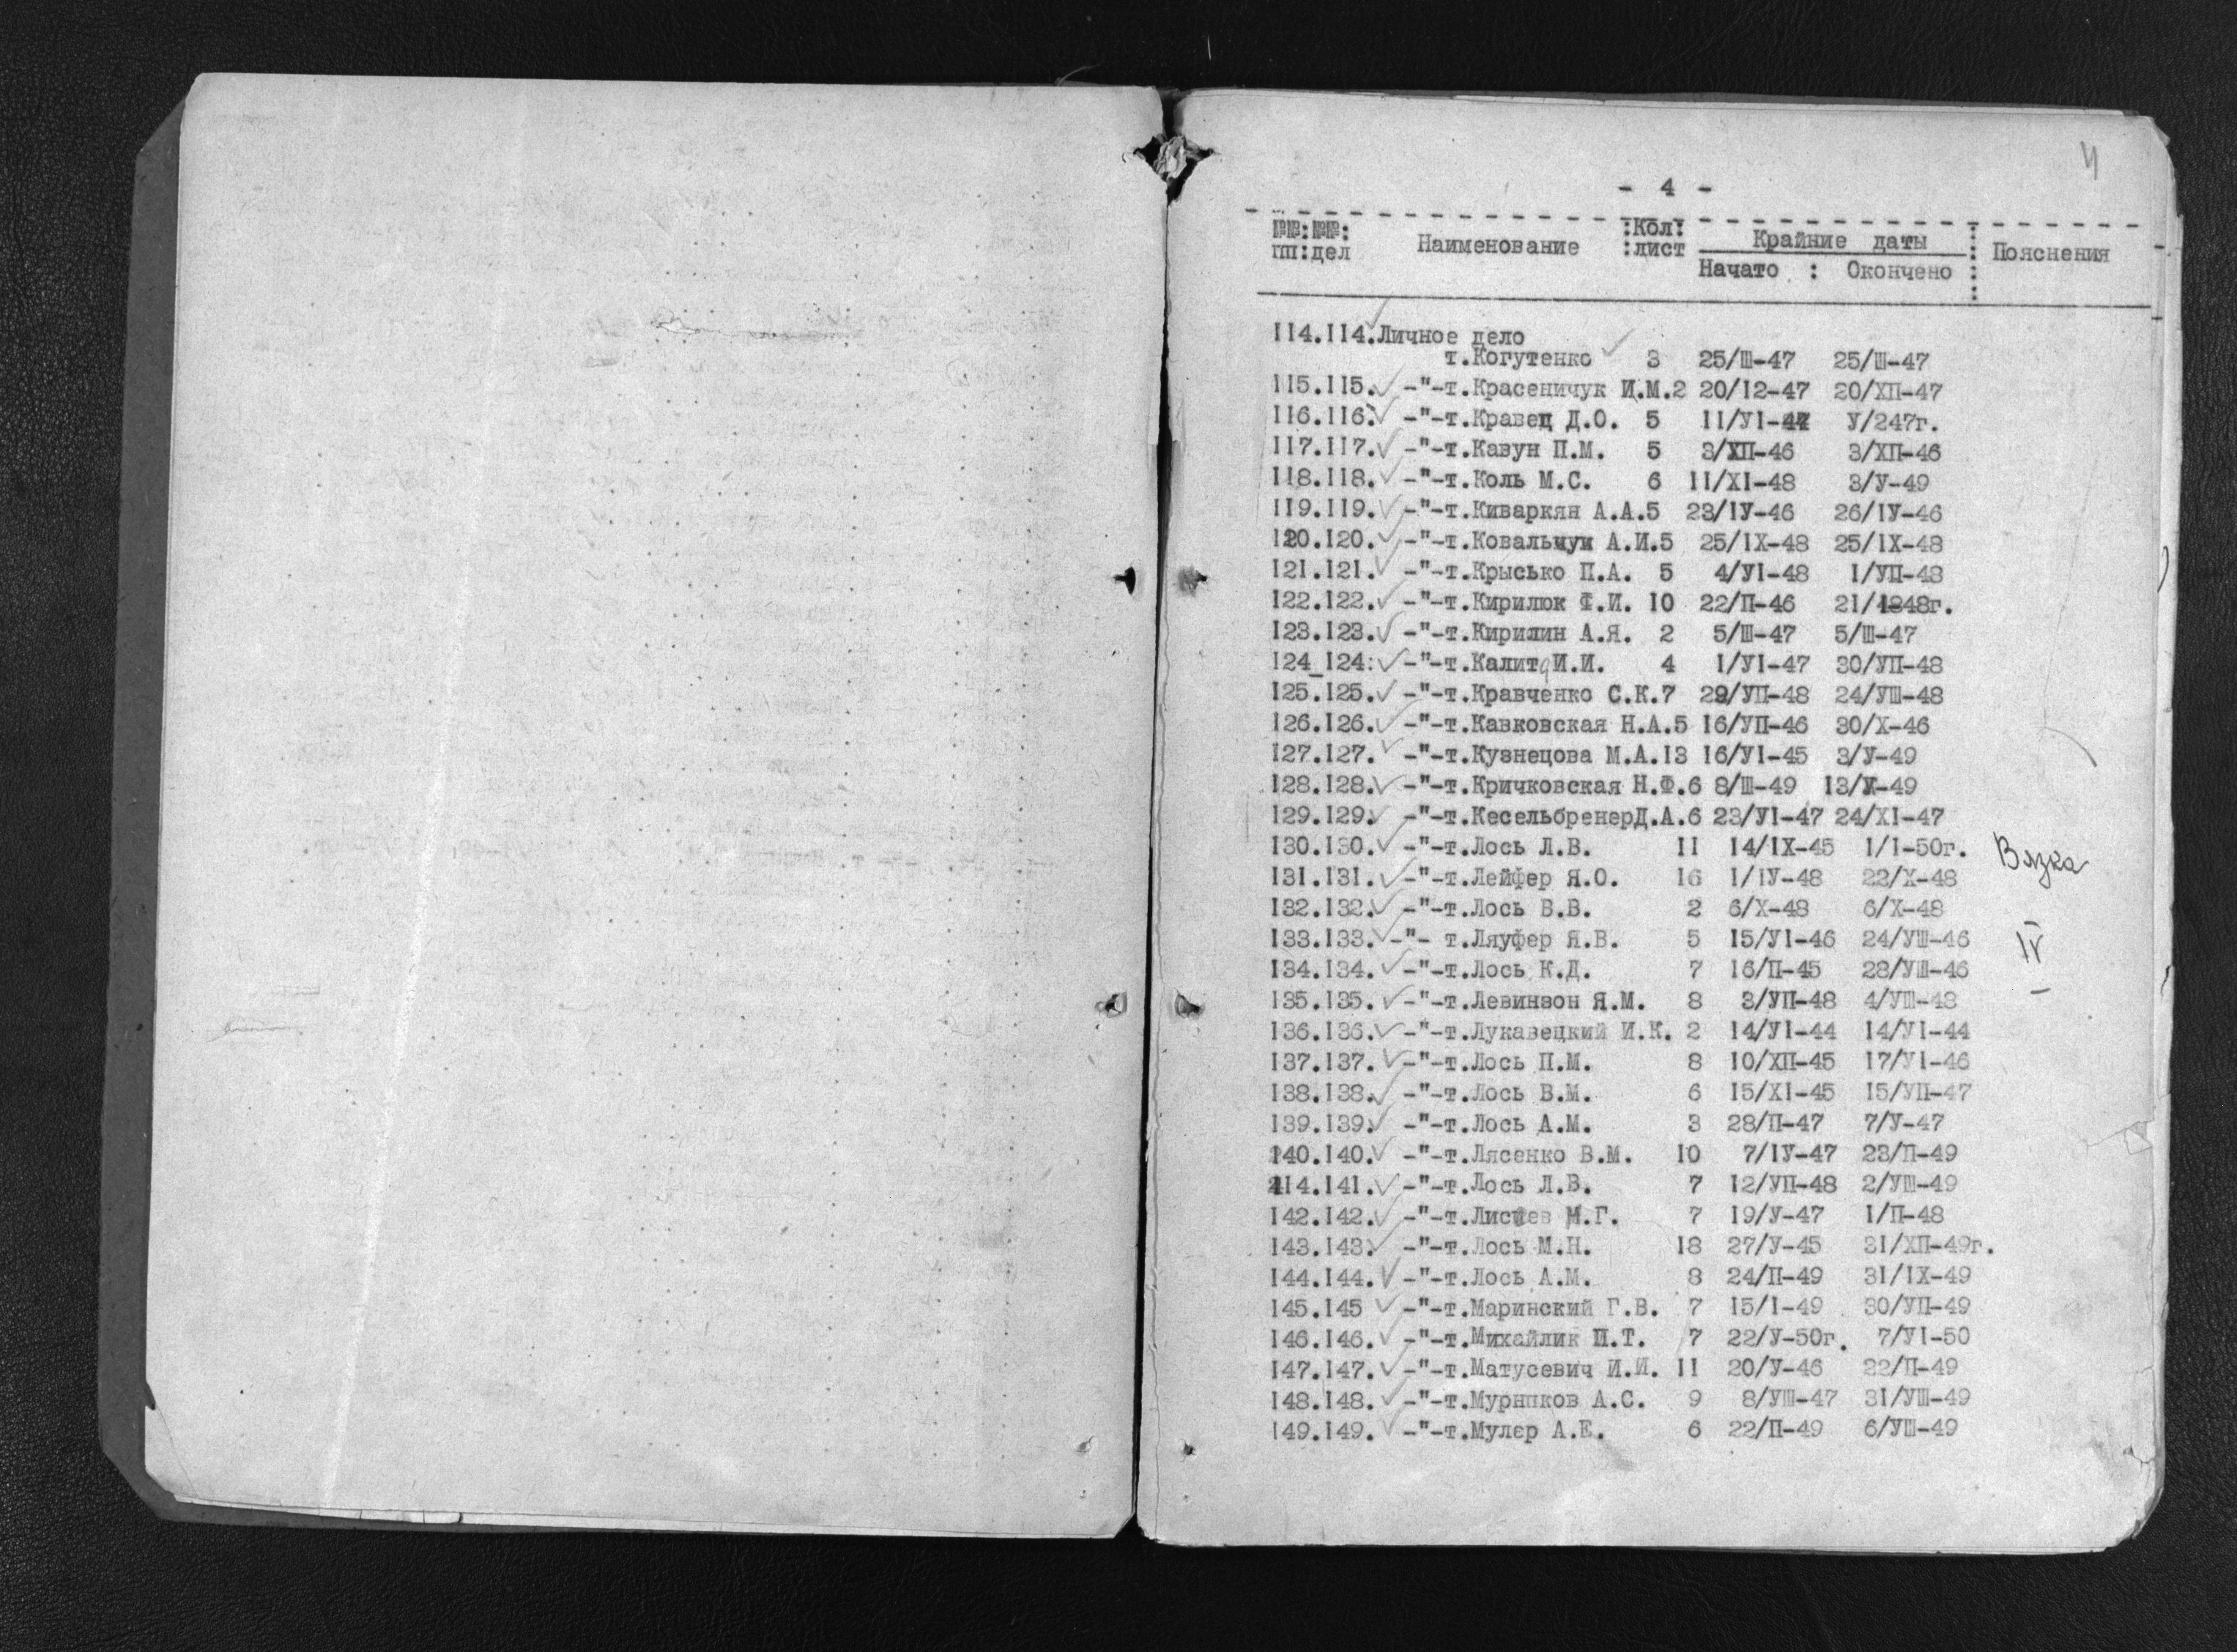 4
- 4 -
№№:№№: Наименование :Кол: Крайние даты : Пояснения
пп:дел :лист Начато : Окончено :
114.114.Личное дело
т.Когутенко 3 25/Ш-47 25/Ш-47
115.115. -"-т.Красеничук И.М.2 20/12-47 20/ХП-47
116.116. -"-т.Кравец Д.О. 5 11/У1-47 У/247г.
117.117. -"-т.Кавун П.М. 5 3/ХП-46 3/ХП-46
118.118. -"-т.Коль М.С. 6 11/Х1-48 3/У-49
119.119. -"-т.Киваркян А.А.5 23/1У-46 26/1У-46
120.120. -"-т.Ковальчук А.И.5 25/1Х-48 25/1Х-48
121.121. -"-т.Крысько П.А. 5 4/У1-48 1/УП-48
122.122. -"-т.Кирилюк Ф.И. 10 22/П-46 21/1848г.
123.123. -"-т.Кирилин А.Я. 2 5/Ш-47 5/Ш-47
124_124. -"-т.Калита И.И. 4 1/У1-47 30/УП-48
125.125. -"-т.Кравченко С.К.7 29/УП-48 24/УШ-48
126.126. -"-т.Кавковская Н.А.5 16/УП-46 30/Х-46
127.127. -"-т.Кузнецова М.А.13 16/У1-45 3/У-49
128.128. -"-т.Кричковская Н.Ф.6 8/Ш-49 13/Х-49
129.129. -"-т.КесельбренерД.А.6 23/У1-47 24/Х1-47
130.130. -"-т.Лось Л.В. 11 14/1Х-45 1/1-50г. Вязка
131.131. -"-т.Лейфер Я.О. 16 1/1У-48 22/Х-48
132.132. -"-т.Лось В.В. 2 6/Х-48 6/Х-48
133.133. -"- т.Ляуфер Я.В. 5 15/У1-46 24/УШ-46 IV
134.134. -"-т.Лось К.Д. 7 16/П-45 28/УШ-46
135.135. -"-т.Левинзон Я.М. 8 3/УП-48 4/УШ-48
136.136. -"-т.Лукавецкий И.К. 2 14/У1-44 14/У1-44
137.137. -"-т.Лось П.М. 8 10/ХП-45 17/У1-46
138.138. -"-т.Лось В.М. 6 15/Х1-45 15/УП-47
139.139. -"-т.Лось А.М. 3 28/П-47 7/У-47
140.140. -"-т.Лясенко В.М. 10 7/1У-47 23/П-49
114.141. -"-т.Лось Л.В. 7 12/УП-48 2/УШ-49
142.142. -"-т. М.Г. 7 19/У-47 1/П-48
143.143. -"-т.Лось М.Н. 18 27/У-45 31/ХП-49г.
144.144. -"-т.Лось А.М. 8 24/П-49 31/1Х-49
145.145 -"-т.Маринский Г.В. 7 15/1-49 30/УП-49
146.146. -"-т.Михайлик П.Т. 7 22/У-50г. 7/У1-50
147.147. -"-т.Матусевич И.И. 11 20/У-46 22/П-49
148.148. -"-т.Мурников А.С. 9 8/УШ-47 31/УШ-49
149.149. -"-т.Мулер А.Е. 6 22/П-49 6/УШ-49